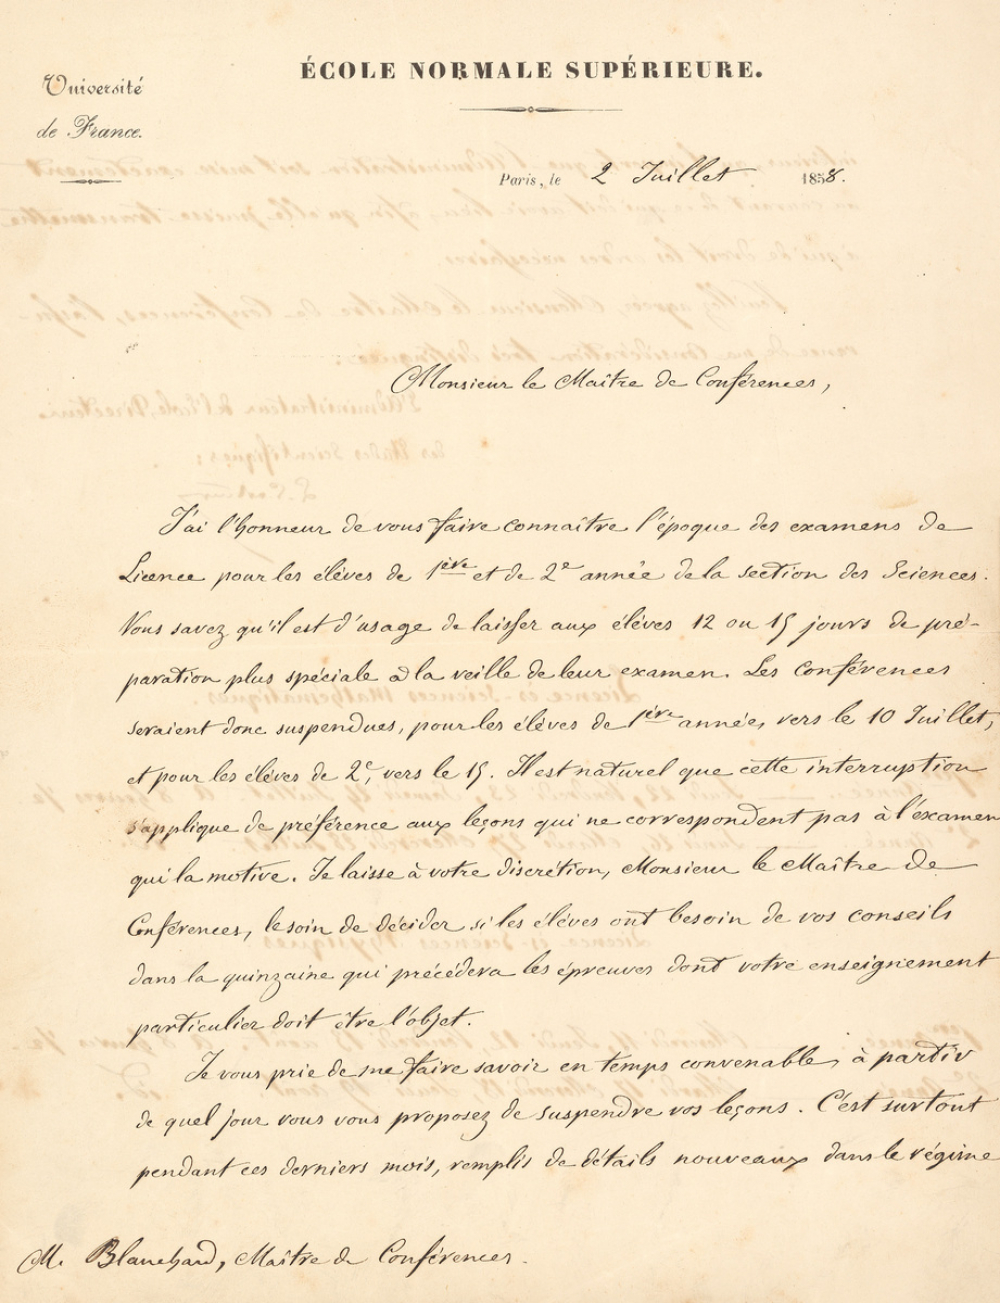 ÉCOLE NORMALE SUPÉRIEURE.
Université
de France.
Paris, le 2 Juillet 1858.
Monsieur le Maître de Conférences,
J'ai l'honneur de vous faire connaître l'époque des examens de
Licence pour les élèves de 1ère et de 2e année de la section des Sciences.
Vous savez qu'il est d'usage de laisser aux élèves 12 ou 15 jours de pré-
paration plus spéciale à la veille de leur examen. Les conférences
seraient donc suspendues, pour les élèves de 1ère année, vers le 10 Juillet,
et pour les élèves de 2e, vers le 15. Il est naturel que cette interruption
s'applique de préférence aux leçons qui ne correspondent pas à l'examen
qui la motive. Je laisse à votre discrétion, Monsieur le Maître de
Conférences, le soin de décider si les élèves ont besoin de vos conseils
dans la quinzaine qui précédera les épreuves dont votre enseignement
particulier doit être l'objet.
Je vous prie de me faire savoir en temps convenable, à partir
de quel jour vous vous proposez de suspendre vos leçons. C'est surtout
pendant ces derniers mois, remplis de détails nouveaux dans le régime
M. Blanchard, Maître de Conférences.